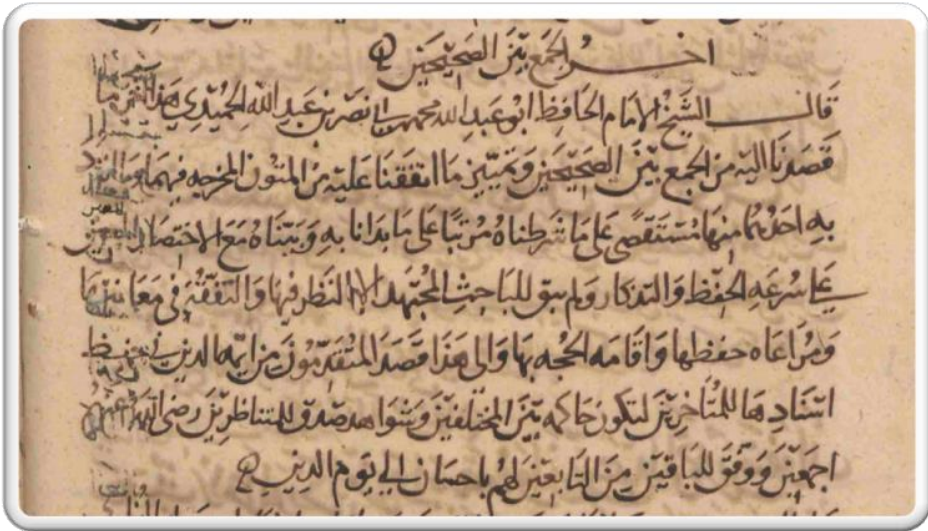 اخر الجمع بين الصحيحين
قال الشيخ الامام الحافظ ابو عبد الله محمد بن ابي نصر بن عبد الله الحميدي هذا انتهى ما
قصدنا اليه من الجمع بين الصحيحين وتمييز ما اتفقنا عليه من المتون المخرجه فيهما وما انفرد
به احدهما منها مستقصى على ما شرطناه مرتبا على ما بدانا به وبيناه مع الاختصار المعين
على سرعه الحفظ والتذكار ولم يبق للباحث المجتهد الا النظر فيها والتفقه في معانيها
ومراعاه حفظها واقامه الحجه بها والى هذا قصد المتقدمون من ايمه الدين في حفظ
اسنادها للمتاخرين لتكون حاكمه بين المختلفين وشواهد صدق للمتناظرين رضي الله عنهم
اجمعين ووفق للباقين من التابعين لهم باحسان الى يوم الدين